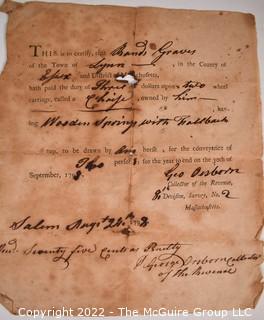 THIS is to certify, that Rand Graves
of the Town of Lynn in the County of
Essex and District of Massachusetts,
hath paid the duty of Three dollars upon a two wheel
carriage, called a Chaise, owned by him
hav-
ing Wooden Springs with fallback
top, to be drawn by one horse, for the conveyance of
Two persons, for the year to end on the 30th of
September, 179
Geo Osborn
Collector of the Revenue,
8th Division, Survey, No. 2
Massachusetts.
Salem Augt 28th 1798
Seventy five Cents Penalty
George Osborn Collector
of the Revenue
Copyright 2022 - The McGuire Group LLC